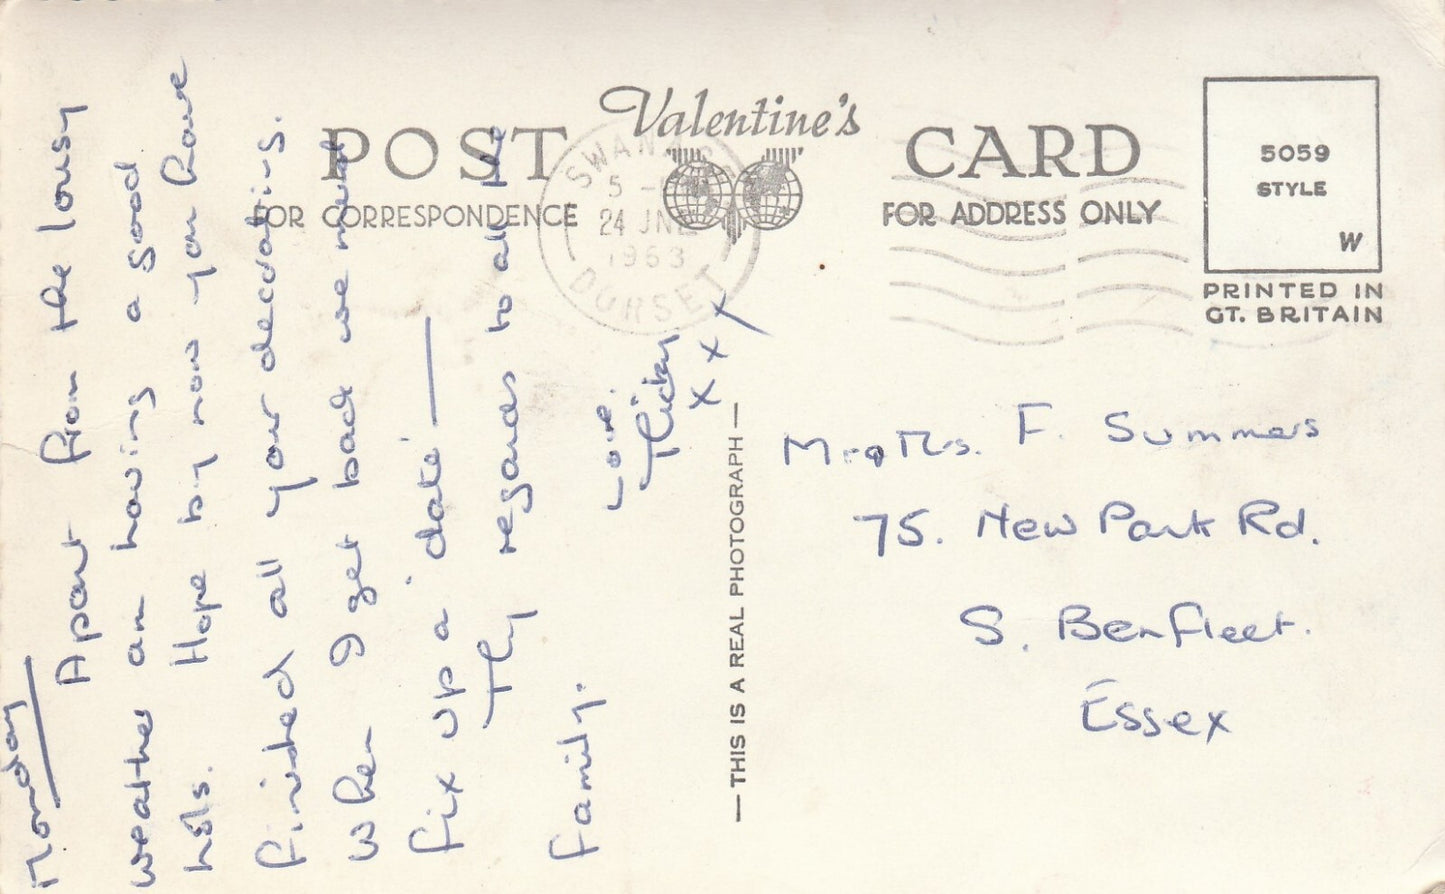 Valentine's
POST CARD
FOR CORRESPONDENCE
FOR ADDRESS ONLY
5059
STYLE
W
PRINTED IN
GT. BRITAIN
SWANAGE
5 -
24 JNE
1963
DORSET
— THIS IS A REAL PHOTOGRAPH —
Monday
Apart from the lousy
weather am having a good
hols. Hope by now you have
finished all your decorating.
When I get back we must
fix up a 'date' —
My regards to all the
family.
Love.
Micky
x x x
Mr & Mrs. F. Summers
75. New Park Rd.
S. Benfleet.
Essex